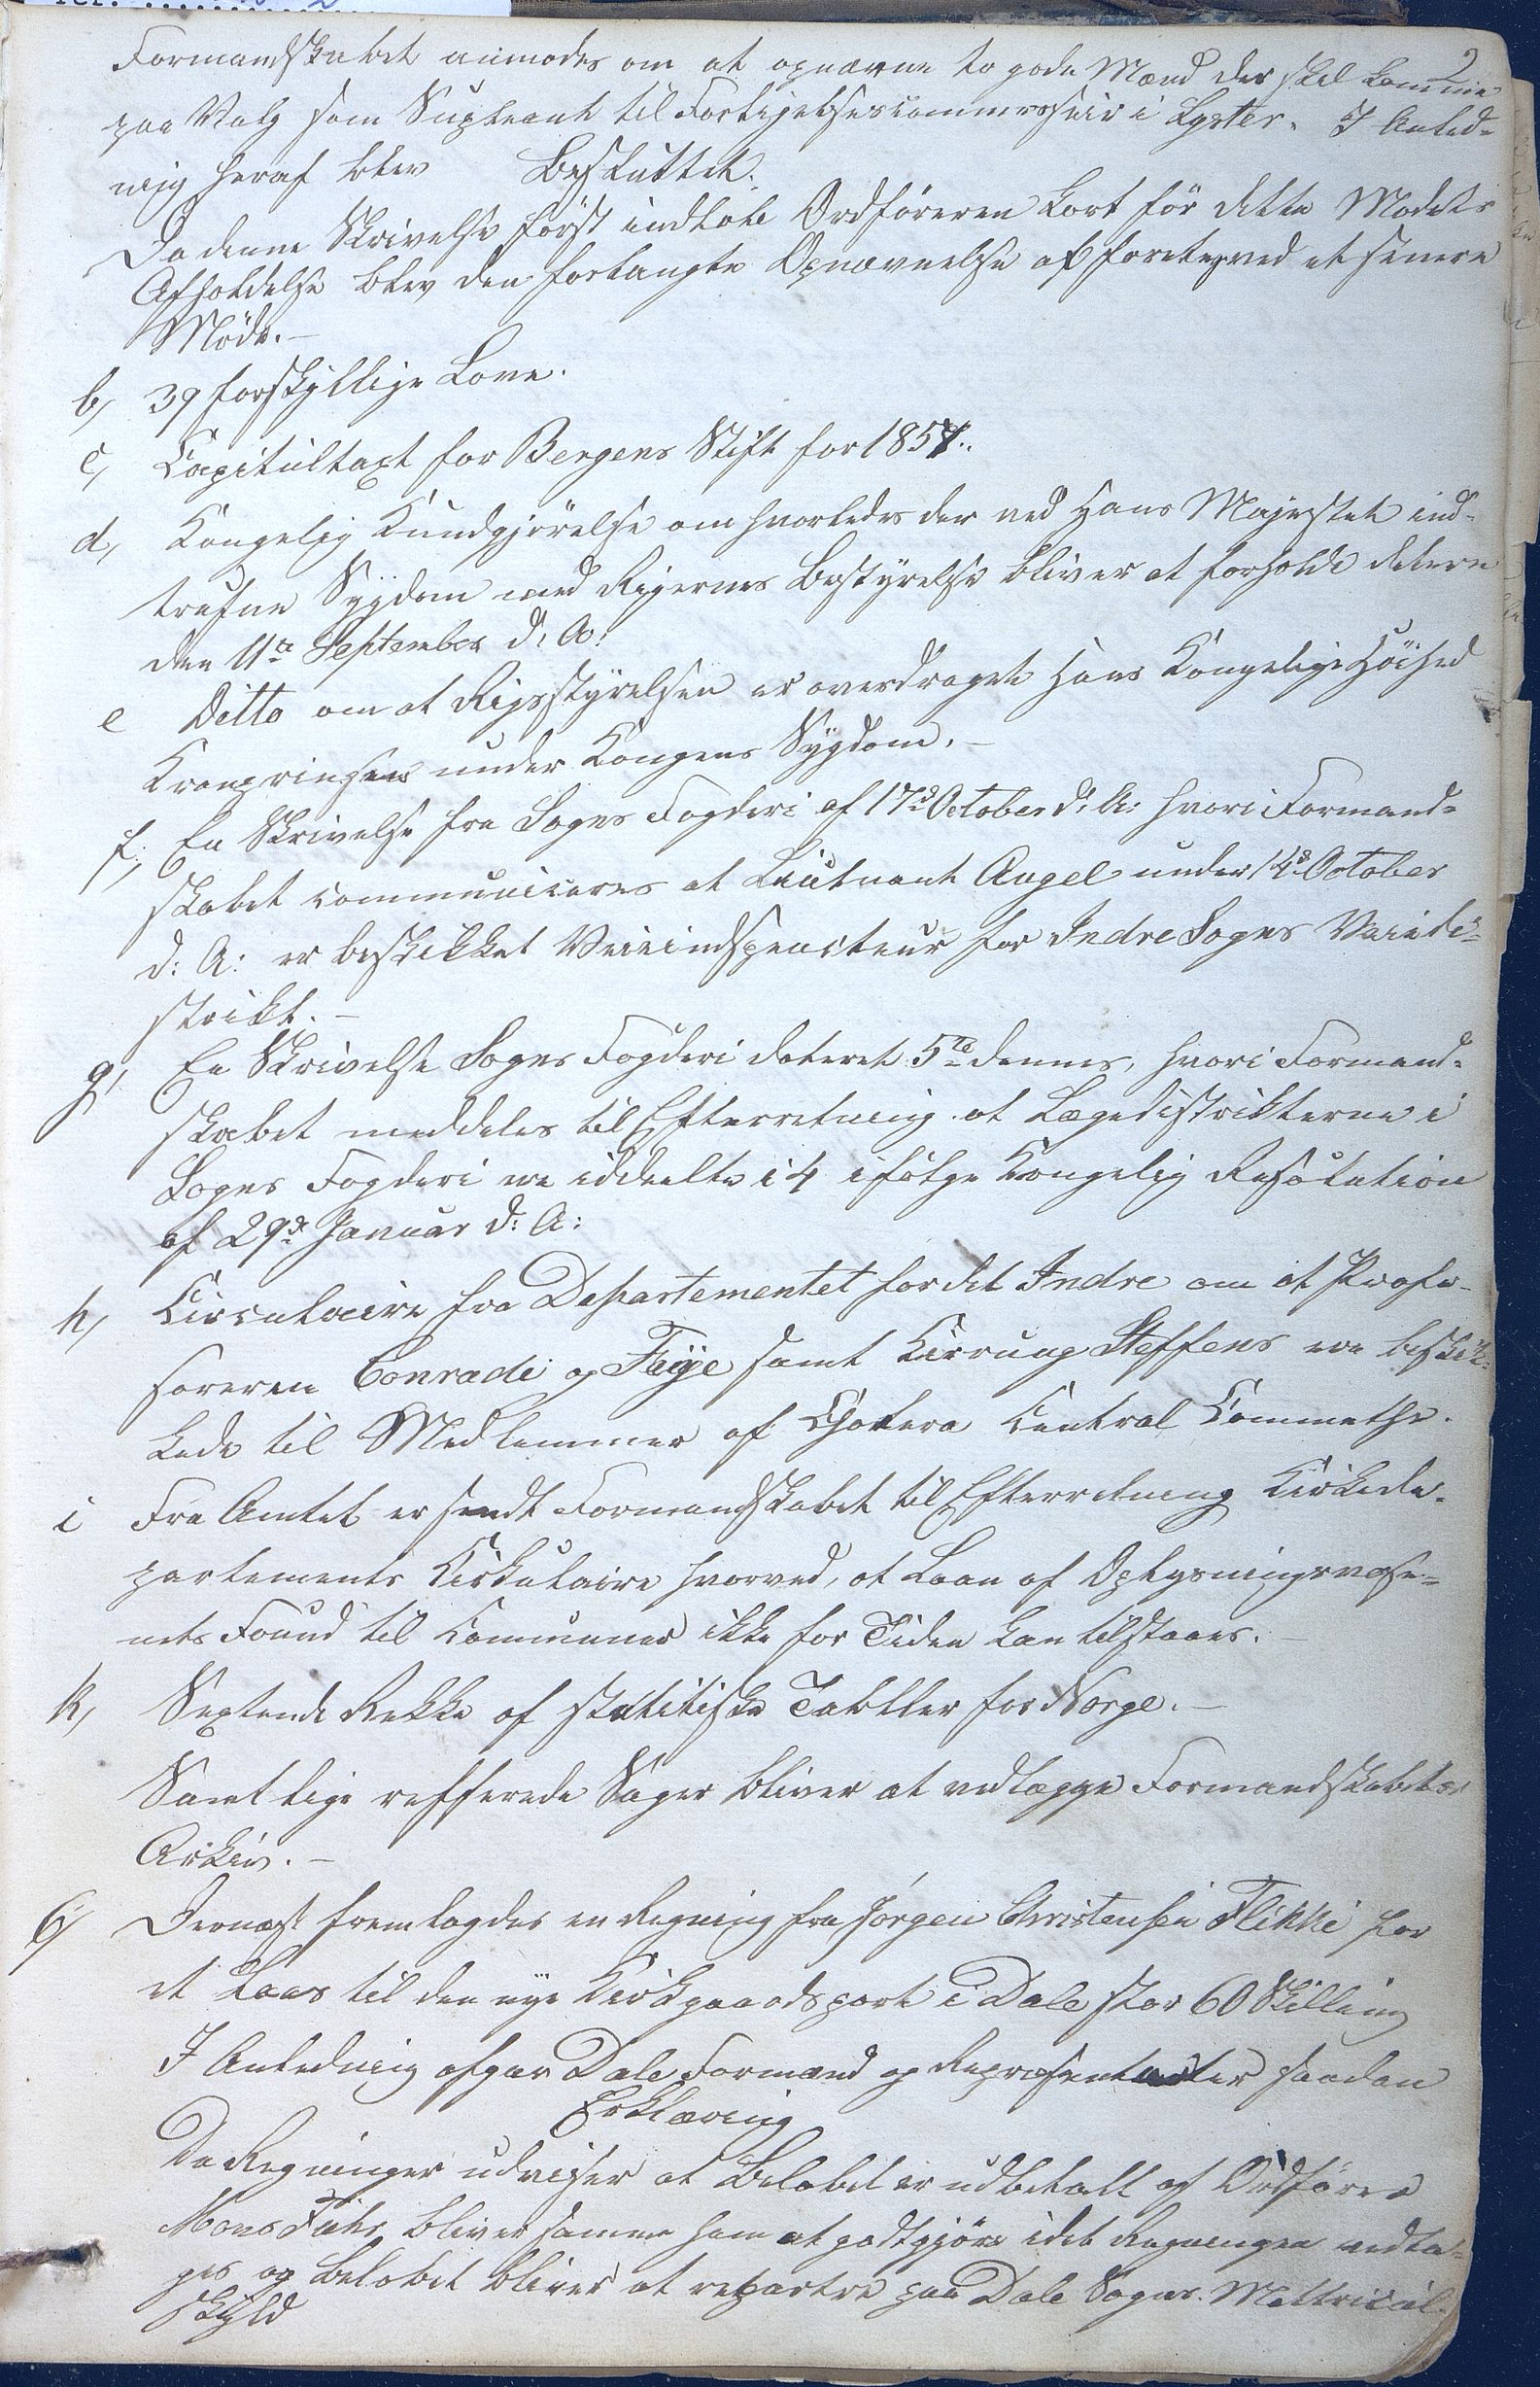 2
Formandskabet anmodes om at opnævne to gode Mænd der skal komme
paa Valg som Supleant til Forligelsescommissair i Lyster. I Anled-
nig heraf blev Besluttet.
Da denne Skrivelse först indløb Ordföreren kort för dette Modets
Afholdelse blev den forlangte Opnævnelse at foretages ved et senere
Möde.-
b, 39 forskjellige Love.
c, Capitultaxt for Bergens Stift for 1857.
d, Kongelig Kundgjörelse om hvorledes der ved Hans Majestæt ind-
trufne Sÿgdom med Rigernes Bestyrelse bliver at forholde dateret
den 11te September d: A:
e Ditto om at Rigsstyrelsen er overdraget Hans Kongelige Höihed
Kronprinsen under Kongens Sÿgdom.-
f, En Skrivelse fra Sogns Fogderi af 17de October d: A: hvori Formand-
skabet communiceres at Lieutnant Angel under 14de October
d: A: er beskikket Veiindspecteur for Indre Sogns Veidi-
strikt.-
g, En Skrivelse Sogns Fogderi dateret 5te dennes, hvori Formand-
skabet meddeles til Efterretning at Lægedistrikterne i
Sogns Fogderi ere iddeelte i 4 ifölge Kongelig Resolution
af 29de Januar d: A:
h, Circulaire fra Departementet for det Indre om at Profes-
sorerne Conradi og Faÿe samt Kirurug Steffens ere beskik-
kede til Medlemmer af Cholera Central Commethe.
i Fra Amtet er sendt Formandskabet til Efterretning Kirkede-
partements Cirkulaire hvorved, at Laan af Oplysningsvæse-
nets Found til Communer ikke for Tiden kan tilstaaes.-
k, Sextende Rekke af statitiske Tabeller for Norge.-
Samtlige refferede Sager bliver at vedlægge Formandskabets
Arkiv.-
6, Dernæst fremlagdes en Regning fra Jörgen Christensen Flikki for
et Laas til den nye Kirkgaardsport i Dale stor 60 Skilling
I Anledning afgav Dale Formænd og Representanter saadan
Erklæring
Da Regninger udviser at Beløbet er udbetalt af Ordförer
Mons Fuhr bliver samme ham at godtgjöre idet Regningen vedta-
ges og Beløbet bliver at repartere paa Dale Sogns Mattricul-
skÿld